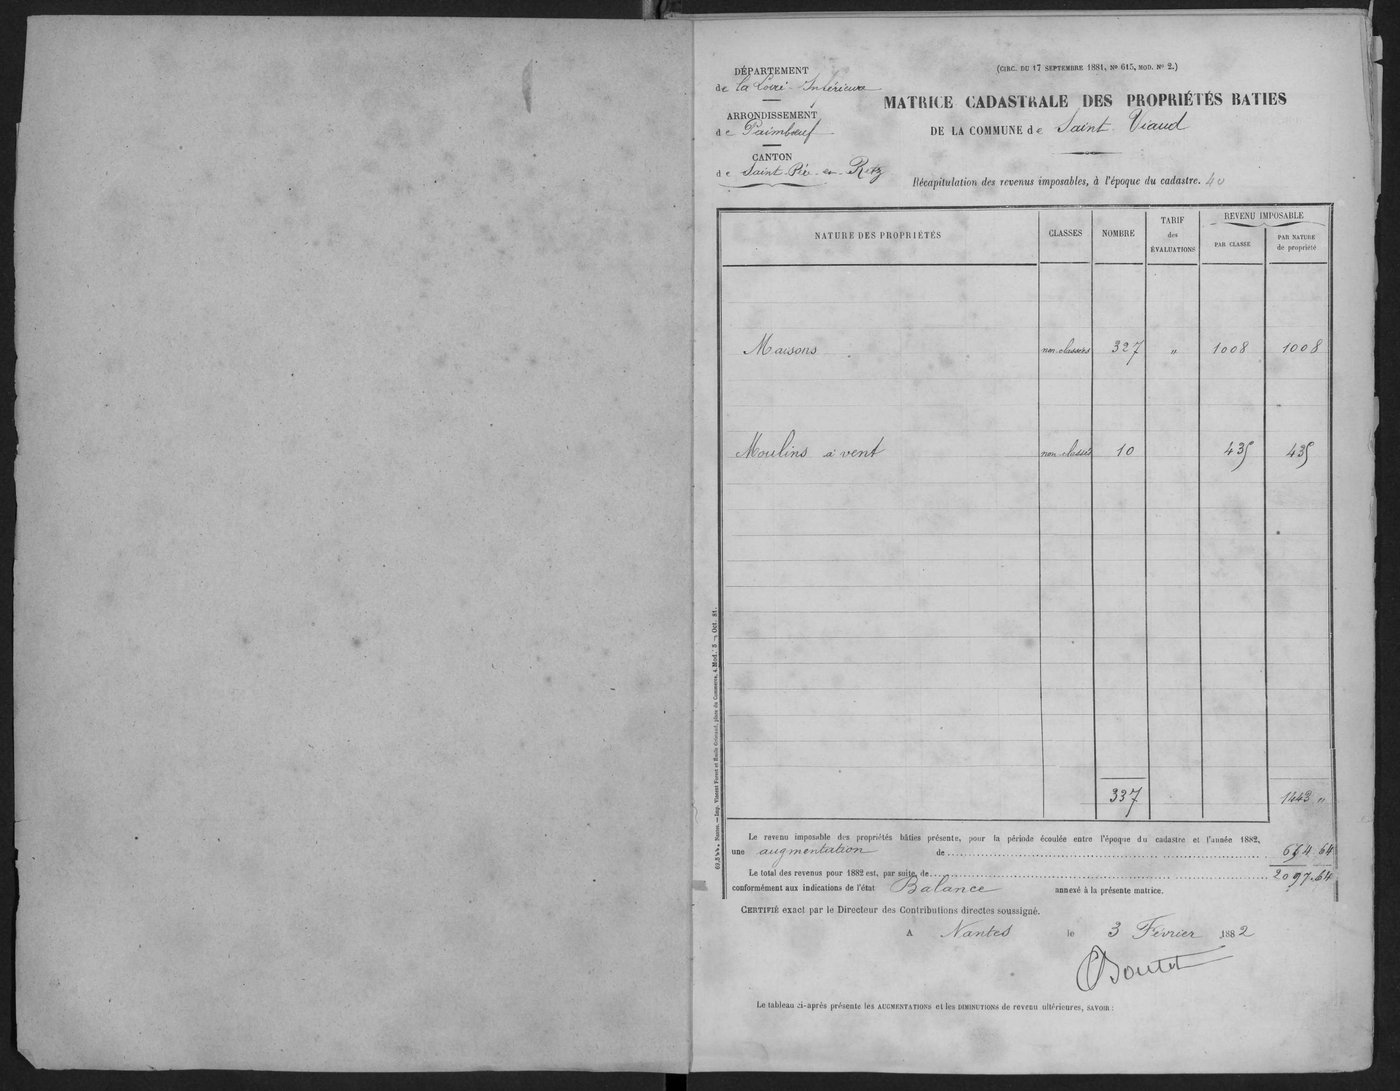 DÉPARTEMENT
de la Loire-Inférieure
ARRONDISSEMENT
de Paimbœuf
CANTON
de Saint-Père-en-Retz
(CIRC. DU 17 SEPTEMBRE 1881, Nº 615, MOD. Nº 2.)
MATRICE CADASTRALE DES PROPRIÉTÉS BATIES
DE LA COMMUNE de Saint Viaud
Récapitulation des revenus imposables, à l'époque du cadastre. 40
NATURE DES PROPRIÉTÉS CLASSES NOMBRE TARIF des ÉVALUATIONS REVENU IMPOSABLE
PAR CLASSE PAR NATURE de propriété
Maisons non classées 327 " 1008 1008
Moulins à vent non classés 10 435 435
337 1443 "
Le revenu imposable des propriétés bâties présente, pour la période écoulée entre l'époque du cadastre et l'année 1882,
une augmentation de 654 64
Le total des revenus pour 1882 est, par suite, de 2097.64
conformément aux indications de l'état Balance annexé à la présente matrice.
CERTIFIÉ exact par le Directeur des Contributions directes soussigné.
A Nantes le 3 Février 1882
Boutet
Le tableau ci-après présente les AUGMENTATIONS et les DIMINUTIONS de revenu ultérieures, SAVOIR :
Nantes. — Imp. Vincent Forest et Emile Grimaud, place du Commerce, 4. Mod. 5. — Oct. 81.